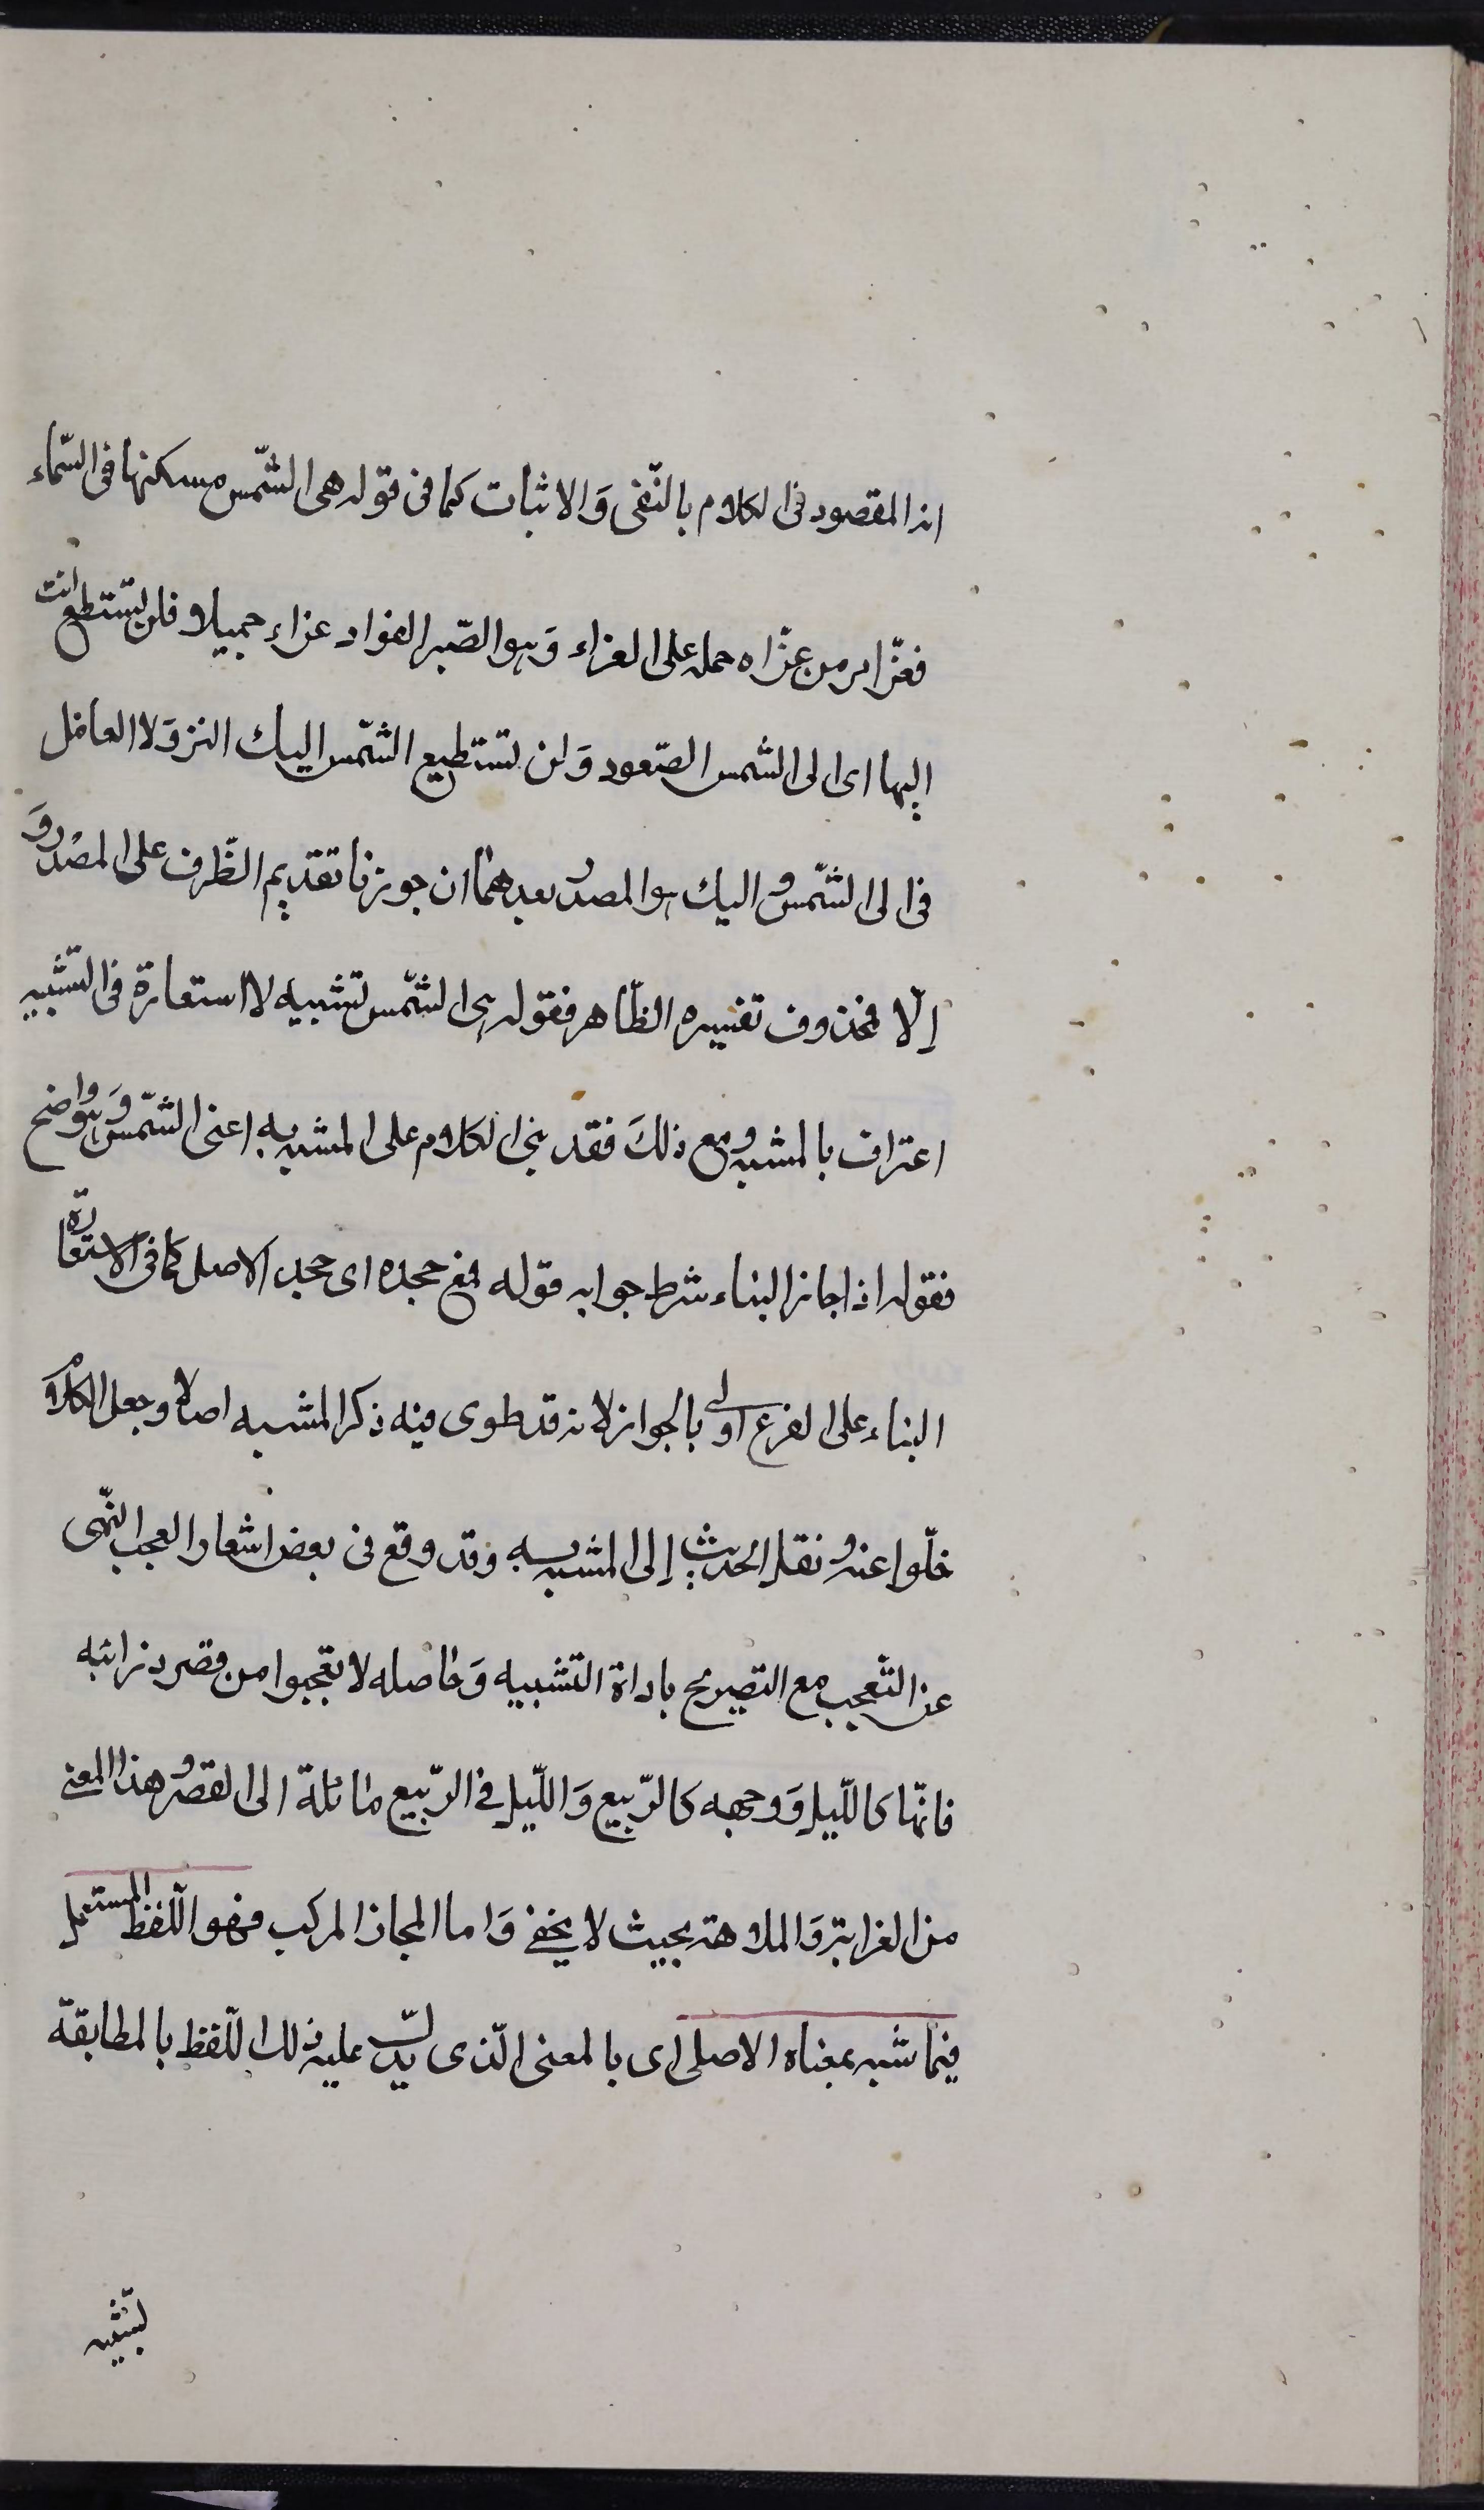 اذ المقصود فى الكلام بالنّفى وَالاثبات كما فى قوله هى الشّمس مسكنها فى السّماء
فعزّ امر من عزّاه حمله على العزاء وَهو الصّبر الفواد عزاء جميلا فلن تستطع انت
اليها اى الى الشمس الصّعود وَلن تستطيع الشّمس اليك النزولا العامل
فى الى الشّمس واليك هو المصدر بعدهما ان جوزنا تقديم الظّرف على المصدر وَ
إلّا فمحذوف تفسيره الظّاهر فقوله هى الشّمس تشبيه لا استعارة فى التشبيه
اعتراف بالمشبه ومع ذلكَ فقد بنى الكلام على المشبه به اعنى الشّمس وَهو واضح
فقوله اذا جاز البناء شرط جوابه قوله فمع جحده اى جحد الاصل كما فى الاستعارة
البناء على الفرع اولى بالجواز لانه قد طوى فيه ذكر المشبه اصلا وجعل الكلام
خلّوا عنه ونقل الحديث إلى المشبه به وقد وقع فى بعض اشعار العجم النّهى
عن التّعجب مع التصريح باداة التّشبيه وَحاصله لا تعجبوا من قصر ذوائبه
فانّها كاللّيل وَوجهه كالرّبيع وَاللّيل فى الرّبيع مائلة الى القصر وهذا المعنى
من الغرابة وَالملاحة بحيث لا يخفى وَاما المجاز المركب فهو اللّفظ المستعمل
فيما شبه بمعناه الاصلى اى بالمعنى الّذى يدلّ عليه ذلك اللّفظ بالمطابقة
تشبيه